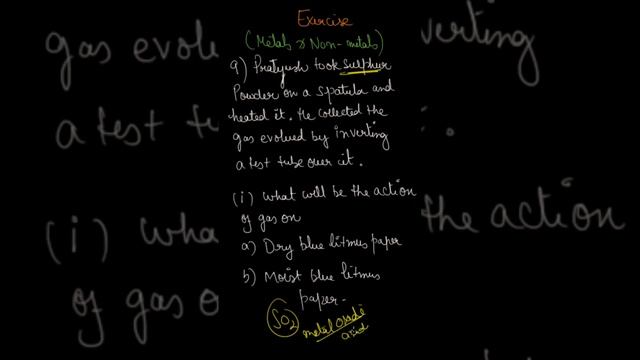 Exercise
(Metals & Non-metals)
9) Pratyush took sulphur
Powder on a spatula and
heated it. He collected the
gas evolved by inverting
a test tube over it.
(i) What will be the action
of gas on
a) Dry blue litmus paper
b) Moist blue litmus
paper-
SO2
metal oxide
acid